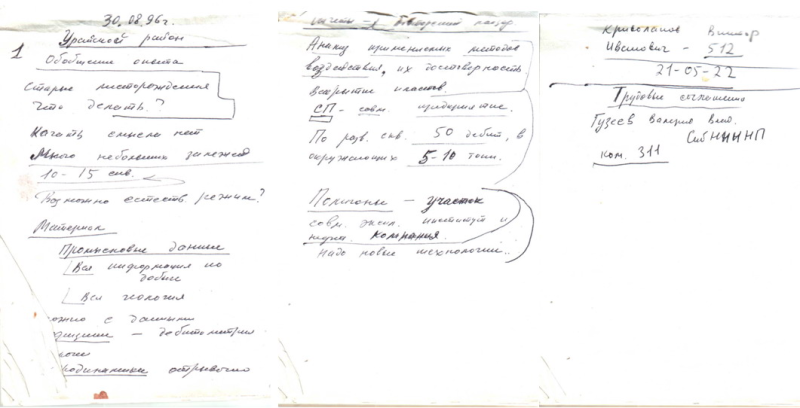 30.08.96г.
Урайский район
1
Обобщение опыта
Старые месторождения
Что делать?
Качать смысла нет
Много небольших залежей
10-15 скв.
Возможно естеств. режим?
Материал
Промысловые данные
Вся информация по
добыче
Вся геология
с данными
— дебитометрия
отрывочно
Анализ применяемых методов
воздействия, их достоверность
Вскрытие пластов
СП - совм. предприятие.
По разв. скв. 50 дебит, в
окружающих 5-10 тонн.
Полигоны — участок
совм. эксп. институт и
компания.
Надо новые технологии..
Криволапов Виктор
Иванович - 512
21-05-22
Трудовые соглашения
Гузеев Валерий Влад.
СибНИИНП
ком. 311